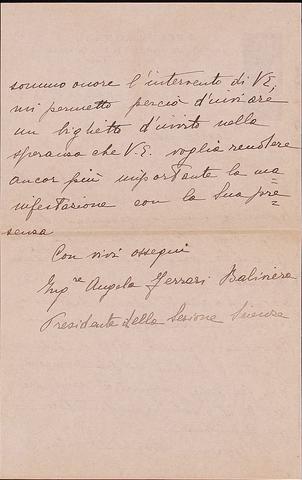 sommo onore l'intervento di V.E,
mi permetto perciò d'inviare
un biglietto d'invito nella
speranza che V.E. voglia rendere
ancor più importante la ma=
nifestazione con la Sua pre=
senza
Con vivi ossequi
Angela Ferrari
Presidente della Sezione Scienze